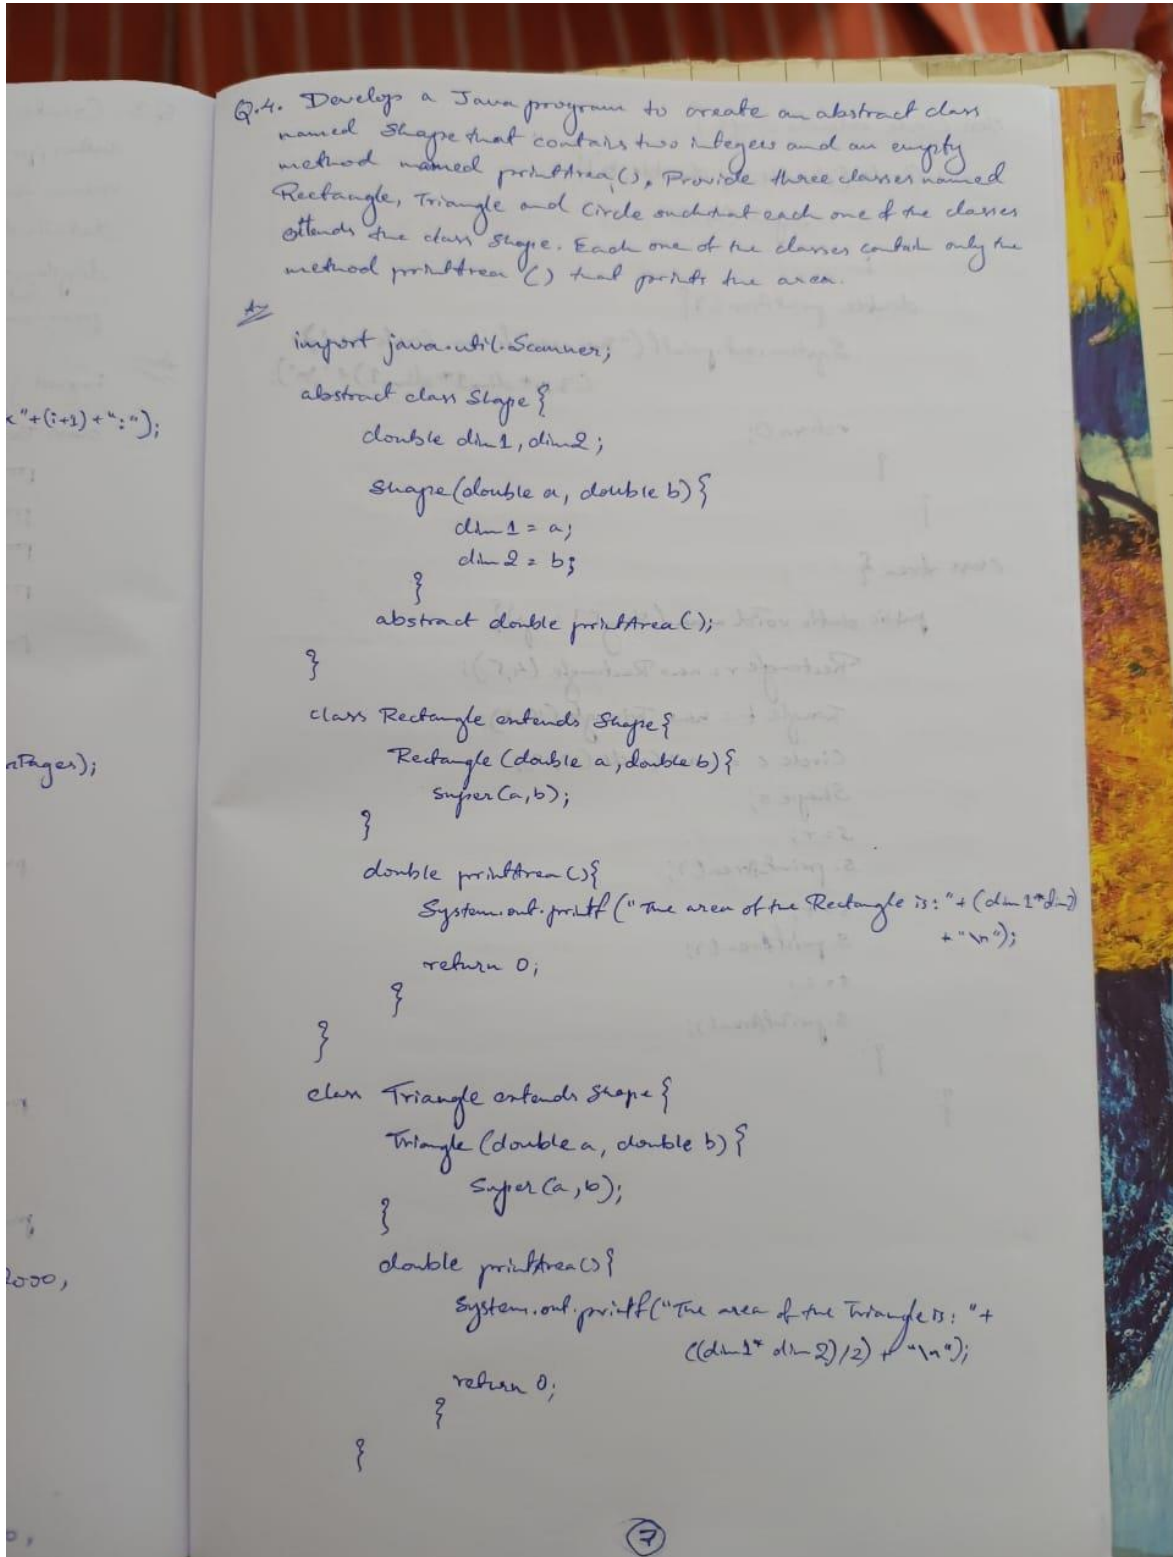 Q.4. Develop a Java program to create an abstract class
named Shape that contains two integers and an empty
method named printArea(). Provide three classes named
Rectangle, Triangle and Circle such that each one of the classes
extends the class Shape. Each one of the classes contain only the
method printArea () that prints the area.
Ans
import java.util.Scanner;
abstract class Shape {
double dim1, dim2;
Shape(double a, double b) {
dim1 = a;
dim2 = b;
}
abstract double printArea();
}
class Rectangle extends Shape {
Rectangle (double a, double b) {
super(a,b);
}
double printArea() {
System.out.printf ("The area of the Rectangle is: "+ (dim1*dim2)
+ "\n");
return 0;
}
}
class Triangle extends Shape {
Triangle (double a, double b) {
super(a,b);
}
double printArea() {
System.out.printf("The area of the Triangle is: "+
((dim1* dim2)/2) + "\n");
return 0;
}
}
7
"+(i+1) + ":");
Pages);
2000,